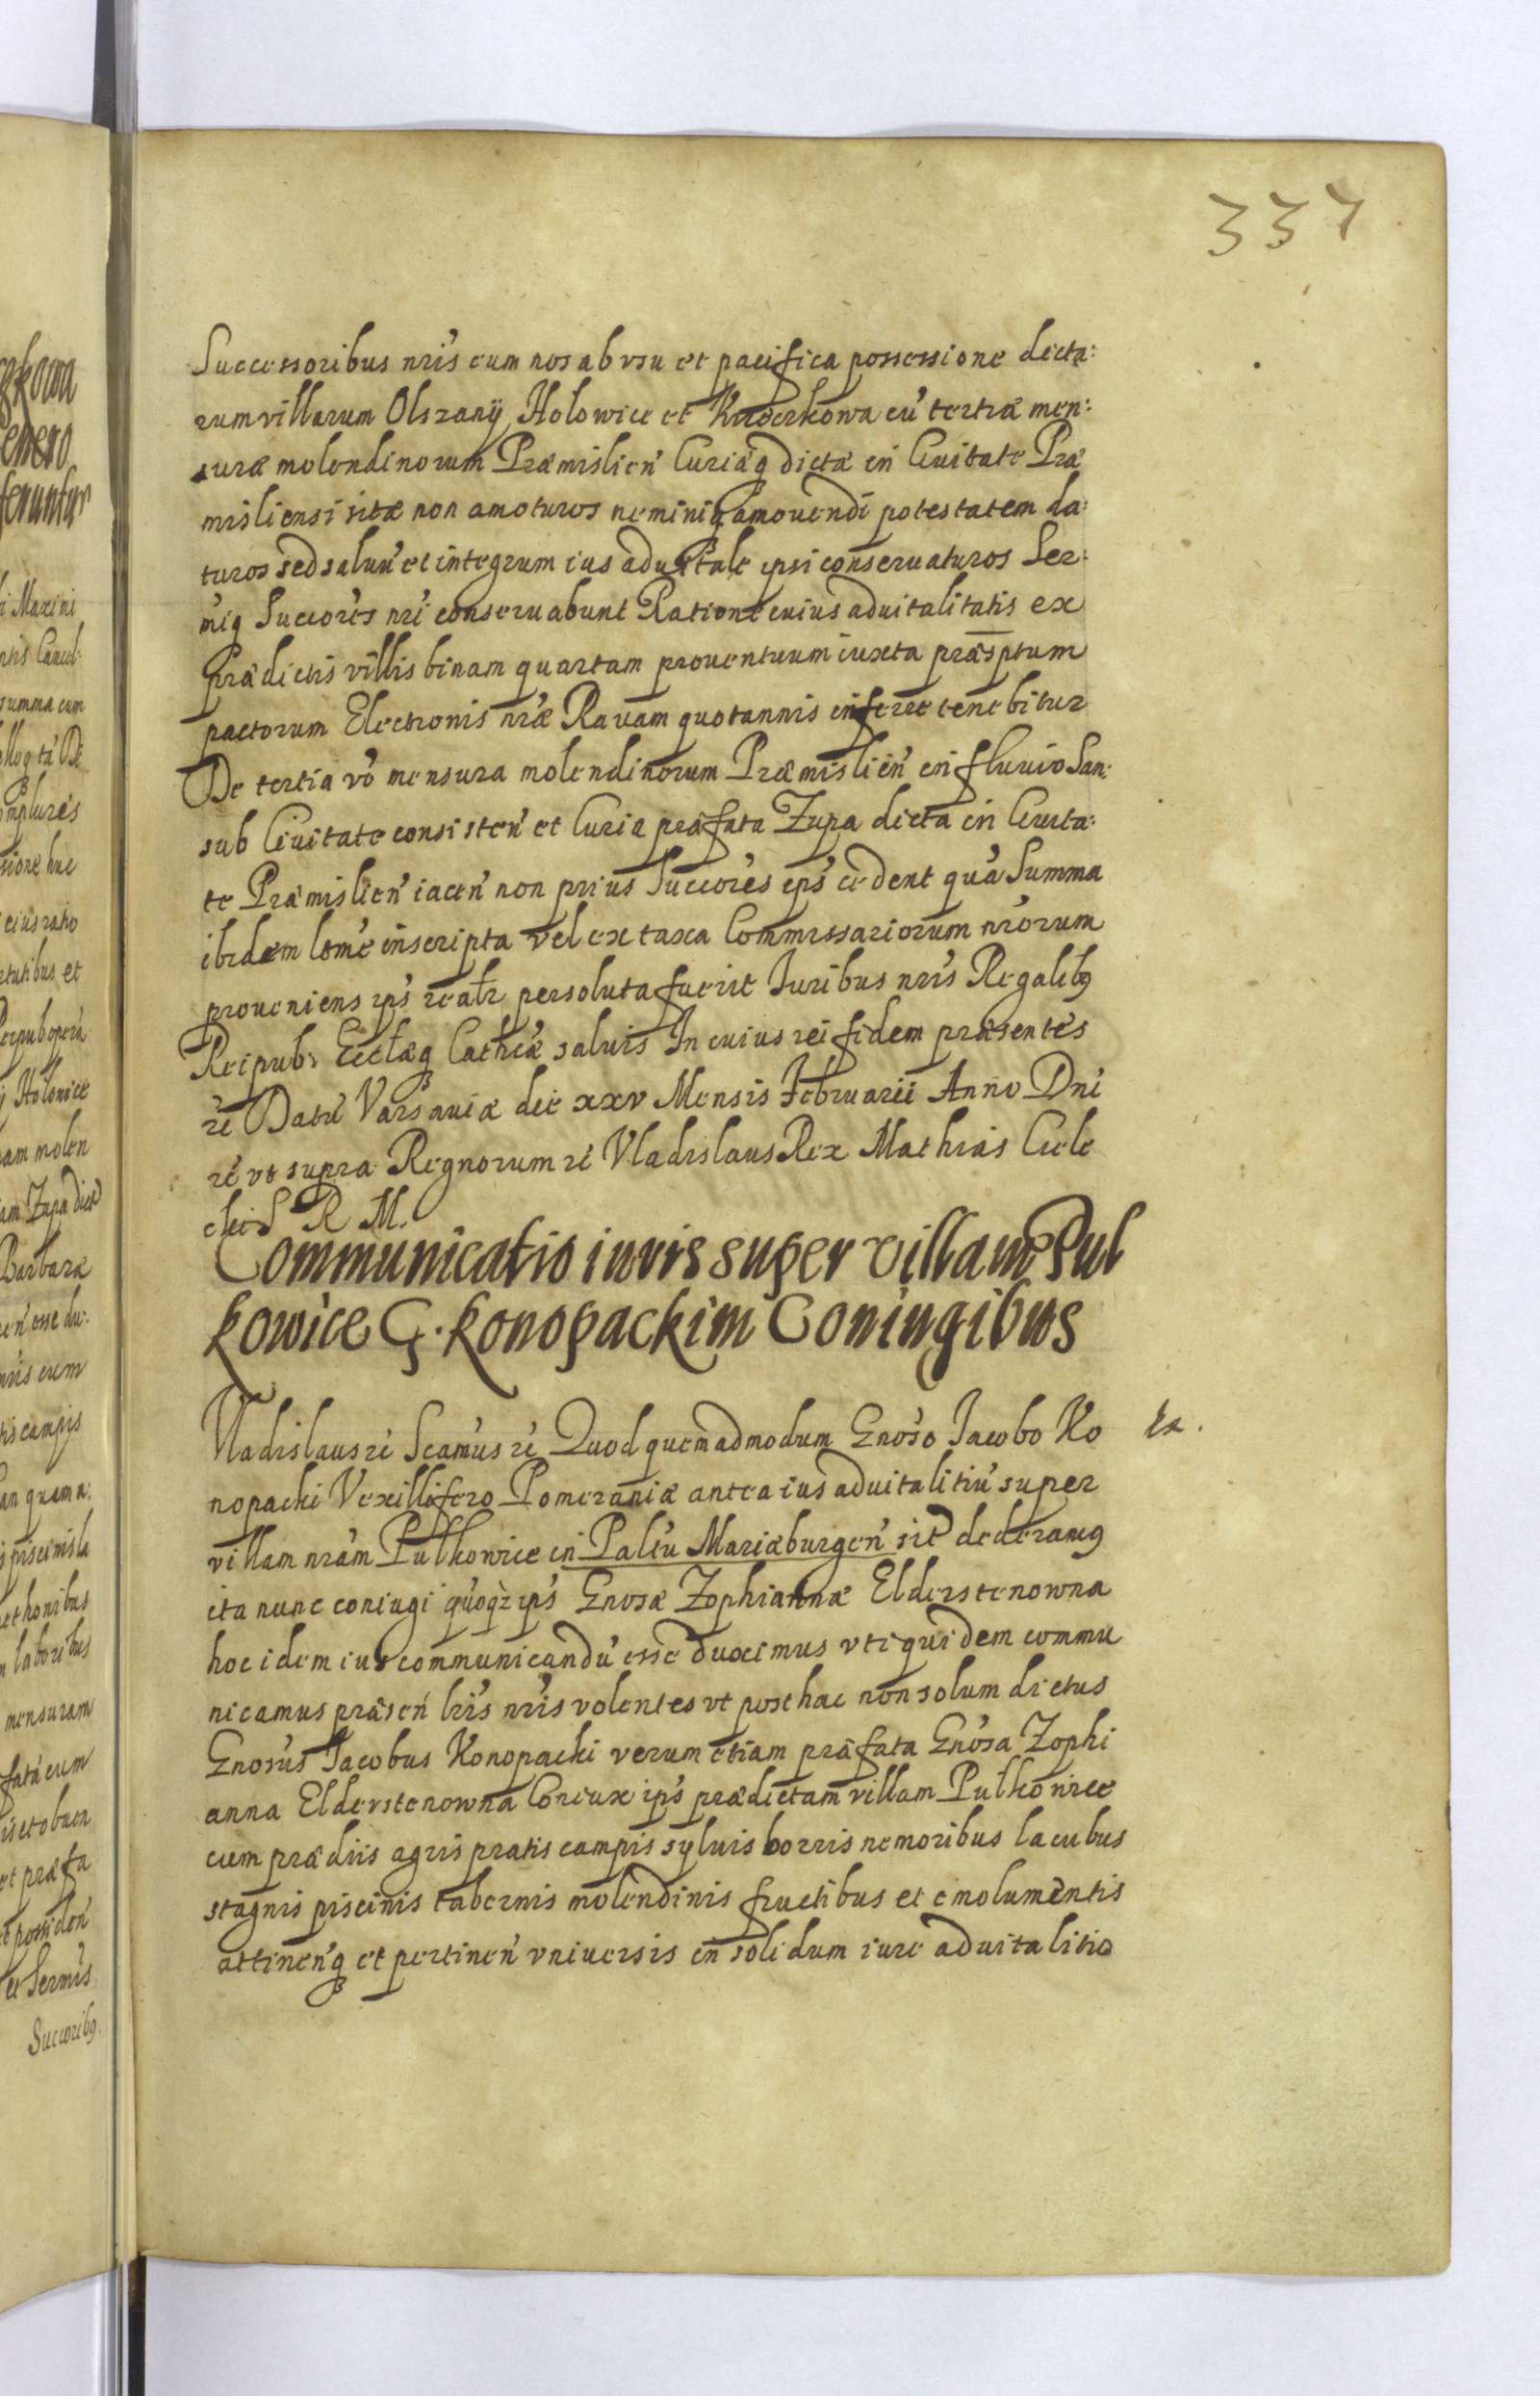 337
Successoribus nri's eum nos ab vsu et pacifica possessione dicta:
rum villarum Olszany Holowice et cu' tertiæ men:
suræ molendinorum Præmislien' Curiæq dictæ in Ciuitate Præ
misliensi sitæ non amoturos neminiq amouendi potestatem da:
turos sed saluu' et integrum ius aduitale ipsi conseruaturos Ser:
miq Succores nri conseruabunt Ratione cuius aduitalitatis ex
prædictis villis binam quartam prouentuum iuxta præsptum
pactorum Electionis nræ Rauam quotannis inferre tenebitur
De tertia vo mensura molendinorum Præmislien' in fluuio San:
sub Ciuitate consisten' et Curia præfata Zupa dicta in Ciuita:
te Præmislien' iacen' non prius Succores ips' cedent qua' Summa
ibidem inscripta vel ex taxa Commissariorum nrorum
proueniens ips' realr persoluta fuerit Iuribus nris Regalibq
Reipub: Ecclæq Cathcæ saluis In cuius rei fidem præsentes
rc Datu' Varsauiæ die xxv Mensis Februarii Anno Dni
rc vt supra Regnorum rc Vladislaus Rex Mathias Ciele
cki S R M.
Communicatio iuris super villam Pul
kowice G. Konopackim Coniugibus
Vladislaus rc Scamus rc Quod quemadmodum Gnoso Iacobo Ko
nopacki Vexillifero Pomeraniæ antea ius aduitalitiu' super
villam nram Pulkowice in Paltu Mariæburgen' sit dederamq
ita nunc coniugi quoq ips' Gnosæ Zophiannæ Elderstenowna
hoc idem ius communicandu' esse duximus vti quidem commu
nicamus præsen' lris nris volentes vt posthac non solum dictus
Gnosus Iacobus Konopacki verum etiam præfata Gnosa Zophi
anna Elderstenowna Coniux ips' prædictam villam Pulkowice
cum prædiis agris pratis campis syluis borris nemoribus lacubus
stagnis piscinis tabernis molendinis fructibus et emolumentis
attinen'q et pertinen' vniuersis in solidum iure aduitalitio